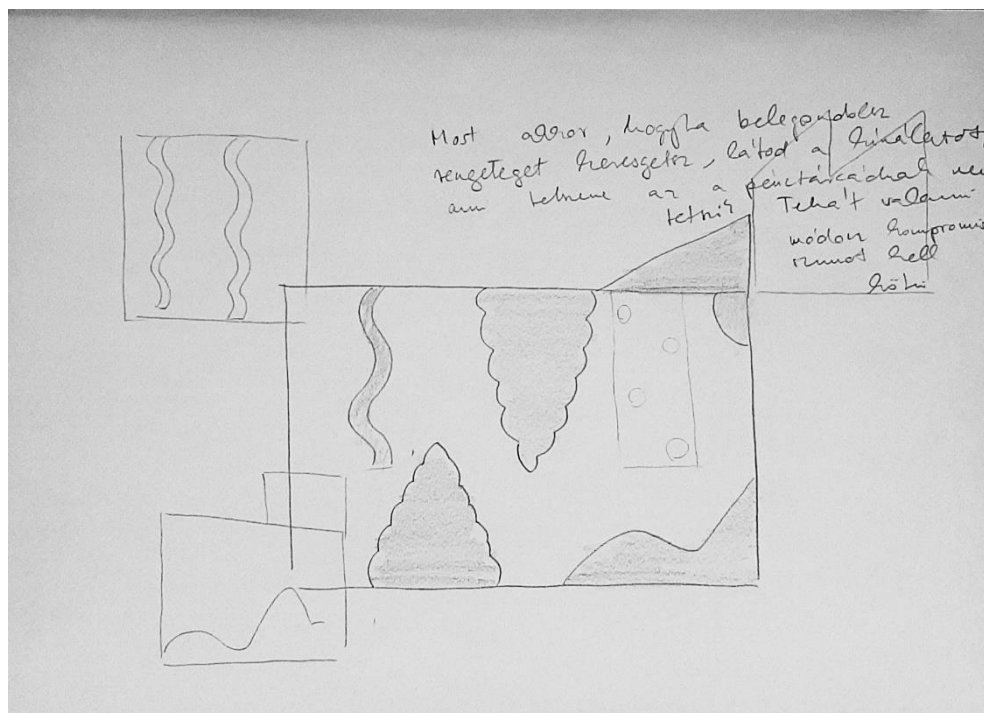 Most akkor, hogyha belegondolsz
rengeteget keresgetsz, látod a kínálatot,
ami tetszene az a pénztárcádnak nem
tetszik Tehát valami
módon kompromis
szumot kell
kötni